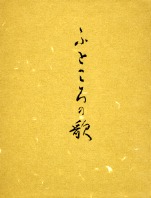 ふところの歌